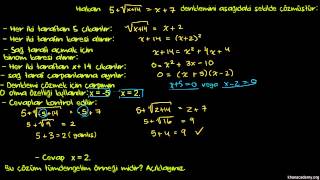 Hakan 5+√x+14 = x+7 denklemini aşağıdaki şekilde çözmüştür:
- Her iki taraftan 5 çıkarılır: √x+14 = x+2
- Her iki tarafın karesi alınır: x+14 = (x+2)²
- Sağ taraf açmak için binom karesi alınır: x+14 = x²+4x+4
- Her iki taraftan x+14 çıkarılır: 0 = x²+3x-10
- Sağ taraf çarpanlarına ayrılır: 0 = (x+5)(x-2)
- Denklemi çözmek için çarpımın 0 olma özelliği kullanılır: x=-5 x=2 x+5=0 veya x-2=0
- Cevaplar kontrol edilir:
5+√-5+14 = -5+7
5+√9 = 2
5+3=2 (yanlış)
5+√2+14 = 2+7
5+√16 = 9
5+4=9 ✓
- Cevap x=2.
Bu çözüm tümdengelim örneği midir? Açıklayınız.
khanacademy.org